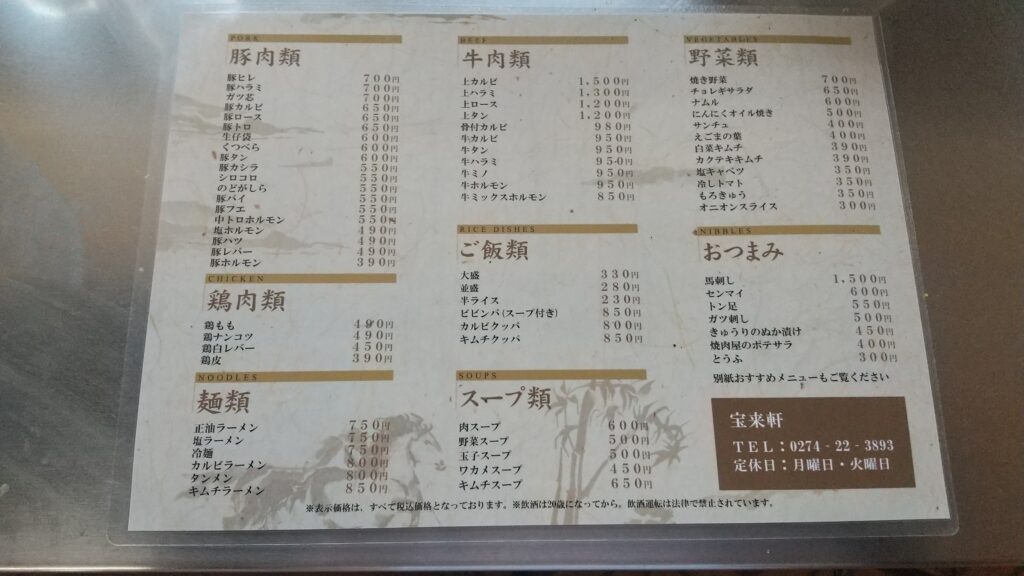 PORK
豚肉類
豚ヒレ 700円
豚ハラミ 700円
ガツ芯 700円
豚カルビ 650円
豚ロース 650円
豚トロ 650円
生仔袋 600円
くつべら 600円
豚タン 600円
豚カシラ 550円
シロコロ 550円
のどがしら 550円
豚パイ 550円
豚フエ 550円
中トロホルモン 550円
塩ホルモン 490円
豚ハツ 490円
豚レバー 490円
豚ホルモン 390円
CHICKEN
鶏肉類
鶏もも 490円
鶏ナンコツ 490円
鶏白レバー 450円
鶏皮 390円
NOODLES
麺類
正油ラーメン 750円
塩ラーメン 750円
冷麺 750円
カルビラーメン 800円
タンメン 800円
キムチラーメン 850円
BEEF
牛肉類
上カルビ 1,500円
上ハラミ 1,300円
上ロース 1,200円
上タン 1,200円
骨付カルビ 980円
牛カルビ 950円
牛タン 950円
牛ハラミ 950円
牛ミノ 950円
牛ホルモン 950円
牛ミックスホルモン 850円
RICE DISHES
ご飯類
大盛 330円
並盛 280円
半ライス 230円
ビビンバ(スープ付き) 850円
カルビクッパ 800円
キムチクッパ 850円
SOUPS
スープ類
肉スープ 600円
野菜スープ 500円
玉子スープ 500円
ワカメスープ 450円
キムチスープ 650円
VEGETABLES
野菜類
焼き野菜 700円
チョレギサラダ 650円
ナムル 600円
にんにくオイル焼き 500円
サンチュ 400円
えごまの葉 400円
白菜キムチ 390円
カクテキキムチ 390円
塩キャベツ 350円
冷しトマト 350円
もろきゅう 350円
オニオンスライス 300円
NIBBLES
おつまみ
馬刺し 1,500円
センマイ 600円
トン足 550円
ガツ刺し 500円
きゅうりのぬか漬け 450円
焼肉屋のポテサラ 400円
とうふ 300円
別紙おすすめメニューもご覧ください
宝来軒
TEL：0274‐22‐3893
定休日：月曜日・火曜日
※表示価格は、すべて税込価格となっております。※飲酒は20歳になってから。飲酒運転は法律で禁止されています。